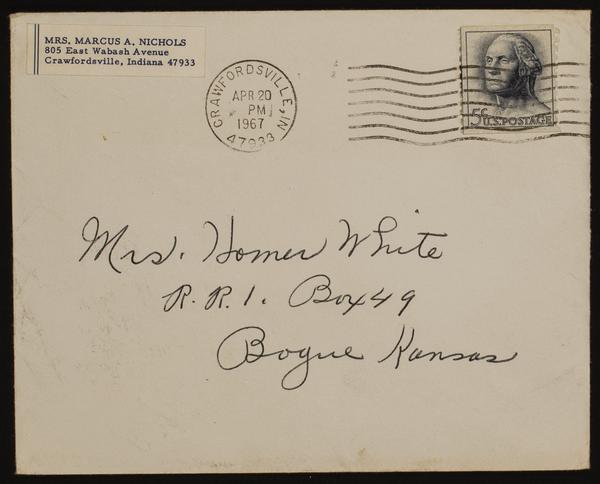 MRS. MARCUS A. NICHOLS
805 East Wabash Avenue
Crawfordsville, Indiana 47933
CRAWFORDSVILLE, IN
APR 20
PM
1967
47933
5¢ U.S. POSTAGE
Mrs. Homer White
R. R. 1. Box 49
Bogue Kansas